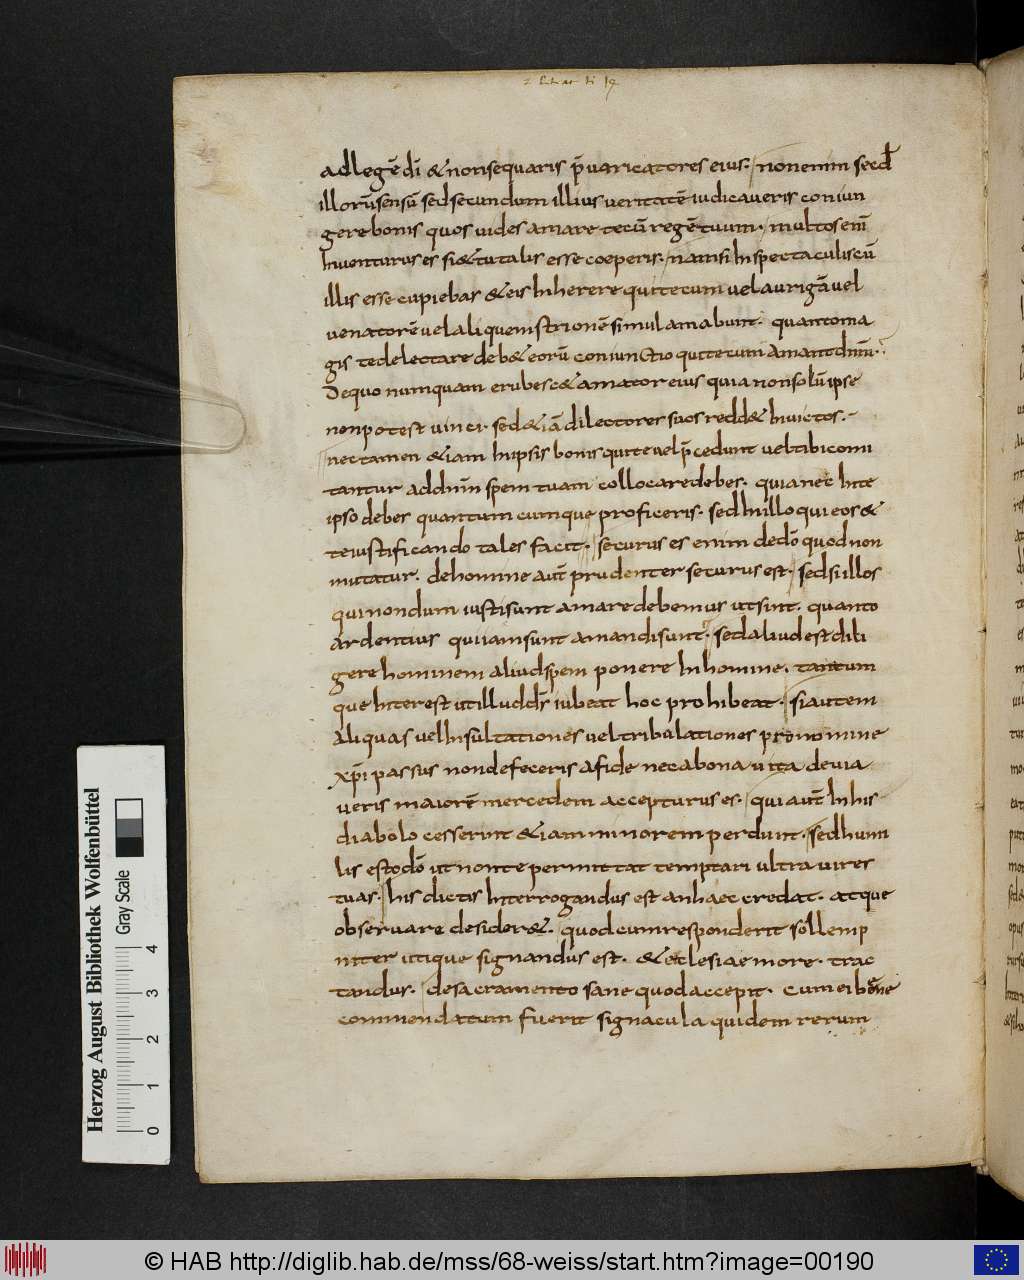 ad legē dī & non sequaris p̄varicatores eius. non enim secd̄
illorū sensū sed secundum illius veritatē iudicaveris coniun
gere bonis quos vides amare tecū regē tuum. multos enī
inventurus es si & tu talis esse coeperis. nam si in spectaculis cū
illis esse cupiebas & eis inherere qui tecum vel aurigā vel
venatorē vel aliquem strionē simul amabunt. quanto ma
gis te delectare deb& eorū coniunctio qui tecum amant dn̄m.
De quo numquam erubesc& amator eius quia non solū ipse
non potest vinci. sed & iā dilectores suos redd& invictos.
nec tamen & iam in ipsis bonis qui te vel p̄cedunt vel tibi comi
tantur ad dn̄m spem tuam collocare debes. quia nec in te
ipso debes quantumcumque proficeris. sed in illo qui eos &
te iustificando tales facit. securus es enim de dō quod non
mutatur. de homine aut̄ prudenter securus est. sed si illos
qui nondum iusti sunt amare debemus ut sint. quanto
ardentius qui iam sunt amandi sunt. sed aliud est dili
gere hominem aliud spem ponere in homine. tantum
que interest ut illud dr̄ iubeat hoc prohibeat. si autem
aliquas vel insultationes vel tribulationes pro nomine
xp̄i passus non defeceris a fide nec a bona vita devia
veris maiorē mercedem accepturus es. qui aut̄ in his
diabolo cesserint & iam minorem perdunt. sed humi
lis esto dō ut non te permittat temptari ultra vires
tuas. his dictis interrogandus est an haec credat. atque
observare desider&. quod cum responderit sollemp
niter utique signandus est. & ecclesiae more. trac
tandus. de sacramento sane quod accepit. cum ei bene
commendatum fuerit signacula quidem rerum
Herzog August Bibliothek Wolfenbüttel
Gray Scale
0 1 2 3 4
© HAB http://diglib.hab.de/mss/68-weiss/start.htm?image=00190